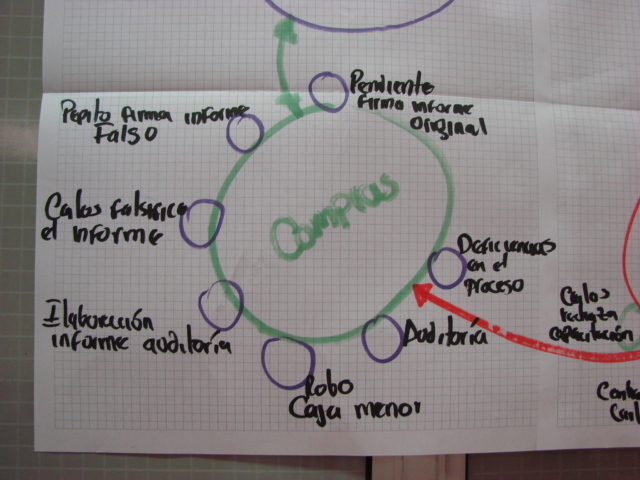 Pendiente
Firma informe
Original
Pepito firma informe
Falso
Calos falsifica
el informe
Compras
Deficiencias
en el
proceso
Elaboración
informe auditoría
Auditoría
Robo
Caja menor
Carlos
rechaza
capacitación